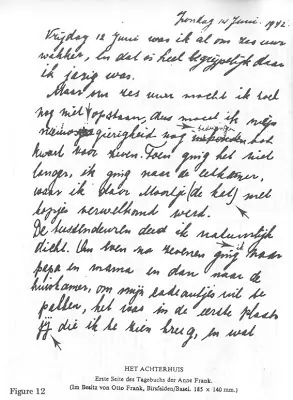 Zondag 14 Juni. 1942.
Vrijdag 12 Juni was ik al om zes uur
wakker, en dat is heel begrijpelijk daar
ik jarig was.
Maar om zes uur mocht ik toch
nog niet opstaan, dus moest ik mijn
nieuwsgierigheid nog bedwingen tot
kwart voor zeven. Toen ging het niet
langer, ik ging naar de eetkamer,
waar ik door Moortje (de kat) met
kopjes verwelkomd werd.
De huisdeuren deed ik natuurlijk
dicht. Om even na zevenen ging ik naar
papa en mama en dan naar de
huiskamer, om mijn cadeautjes uit te
pakken, het was in de eerste plaats
jij die ik te zien kreeg, en wat
HET ACHTERHUIS
Erste Seite des Tagebuchs der Anne Frank.
(Im Besitz von Otto Frank, Birsfelden/Basel. 185 × 140 mm.)
Figure 12